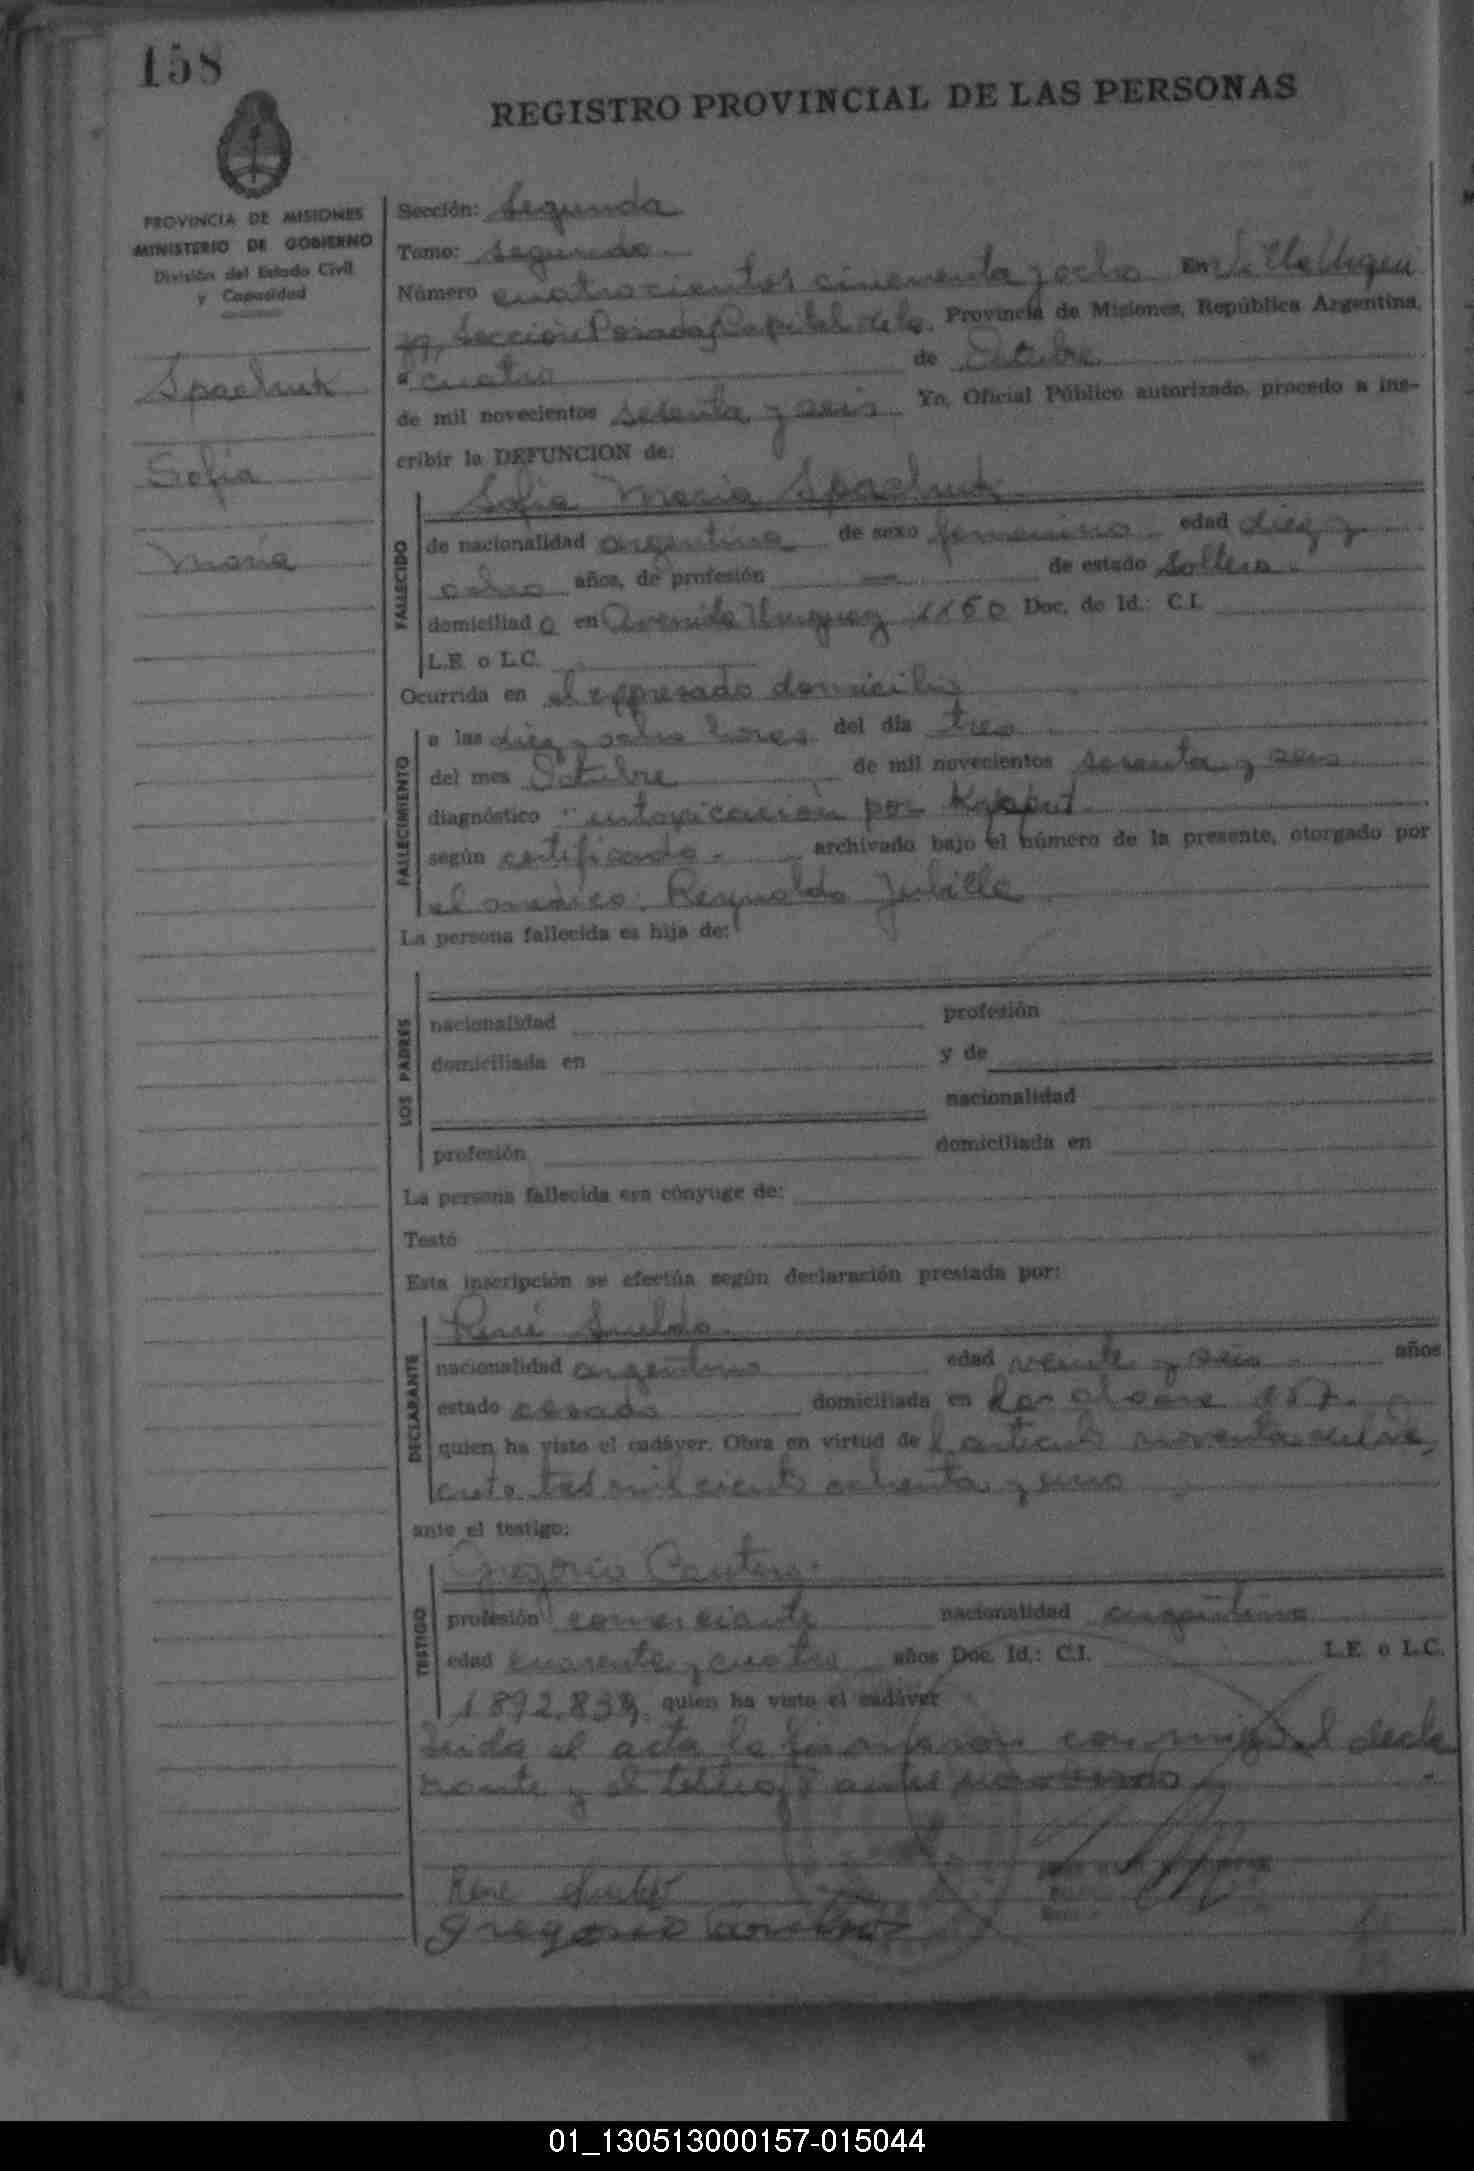 158
REGISTRO PROVINCIAL DE LAS PERSONAS
PROVINCIA DE MISIONES
MINISTERIO DE GOBIERNO
División del Estado Civil
y Capacidad
Spachuk
Sofía
María
Sección: Segunda
Tomo: segundo
Número cuatrocientos cincuenta y ocho En Villa Urqui
za, Sección Posadas Capital de la Provincia de Misiones, República Argentina,
a cuatro de Octubre
de mil novecientos sesenta y seis Yo, Oficial Público autorizado, procedo a ins-
cribir la DEFUNCION de:
Sofia Maria Spachuk
FALLECIDO
de nacionalidad argentina de sexo femenino edad diez y
ocho años, de profesión — de estado soltera
domiciliad a en Avenida Uruguay 1160 Doc. de Id.: C.I.
L.E. o L.C.
Ocurrida en el expresado domicilio
FALLECIMIENTO
a las diez y ocho horas del día tres
del mes Octubre de mil novecientos sesenta y seis
diagnóstico intoxicación por
según certificado archivado bajo el número de la presente, otorgado por
el médico: Reynaldo
La persona fallecida es hija de:
LOS PADRES
nacionalidad profesión
domiciliada en y de
nacionalidad
profesión domiciliada en
La persona fallecida era cónyuge de:
Testó
Esta inscripción se efectúa según declaración prestada por:
DECLARANTE
René Sueldo
nacionalidad argentino edad veinte y seis años
estado casado domiciliada en
quien ha visto el cadáver. Obra en virtud de l articulo noventa
creto tres mil ciento ochenta y uno
ante el testigo:
TESTIGO
Gregorio
profesión comerciante nacionalidad argentino
edad cuarenta y cuatro años Doc. Id.: C.I. L.E. o L.C.
quien ha visto el cadáver
Leida el acta la firmaron conmigo el decla
rante y el testigo
René
Gregorio
01_130513000157-015044